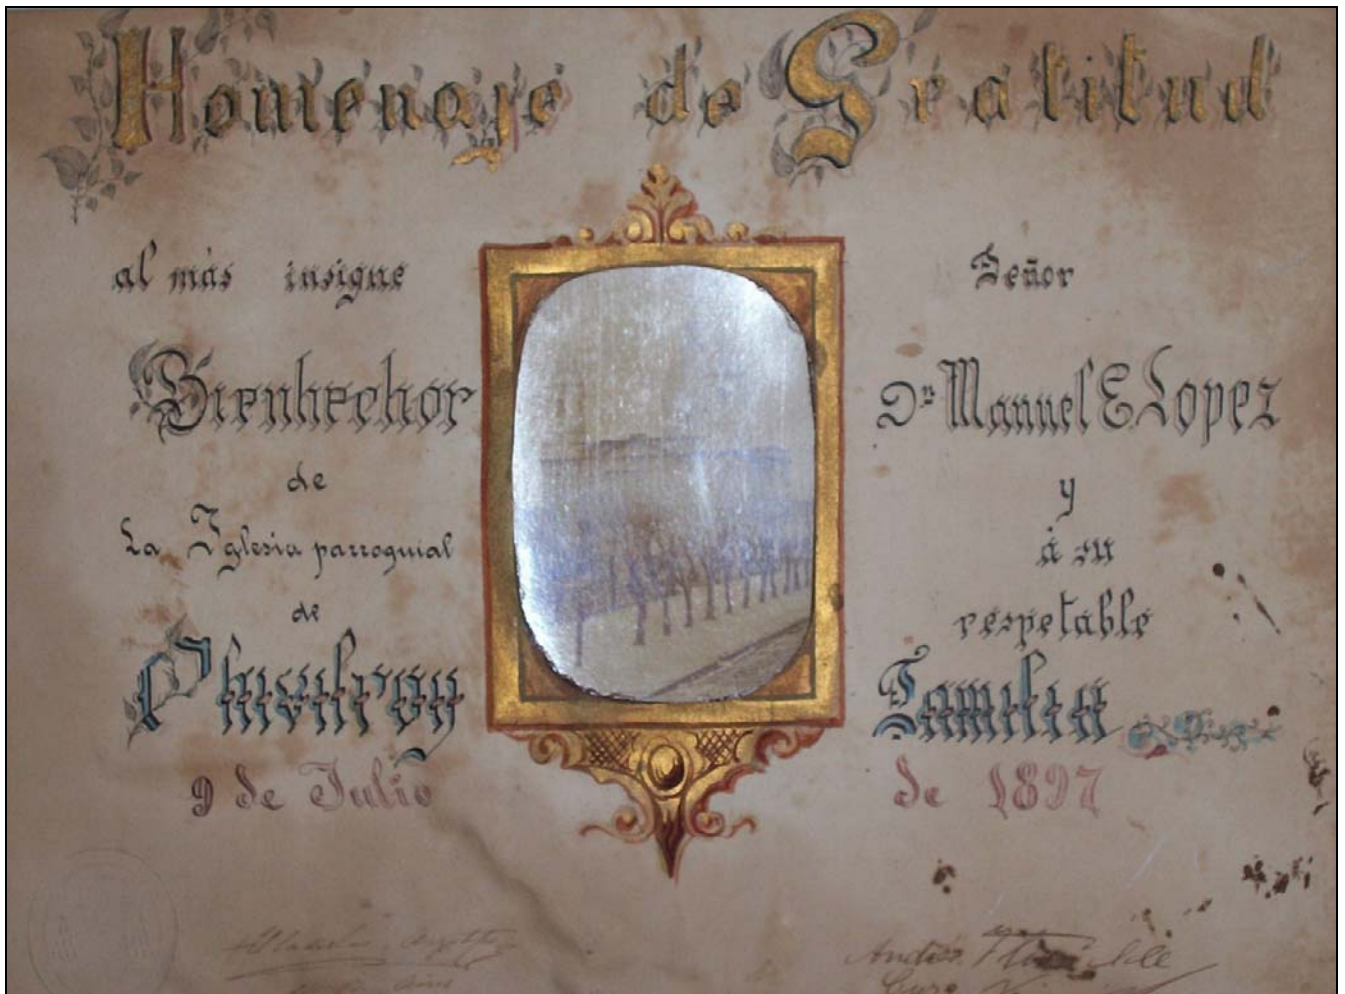 Homenaje de Gratitud
al más insigne
Bienhechor
de
La Iglesia parroquial
de
Chivilcoy
9 de Julio
Señor
Dn Manuel E Lopez
y
á su
respetable
Familia
de 1897
Cura